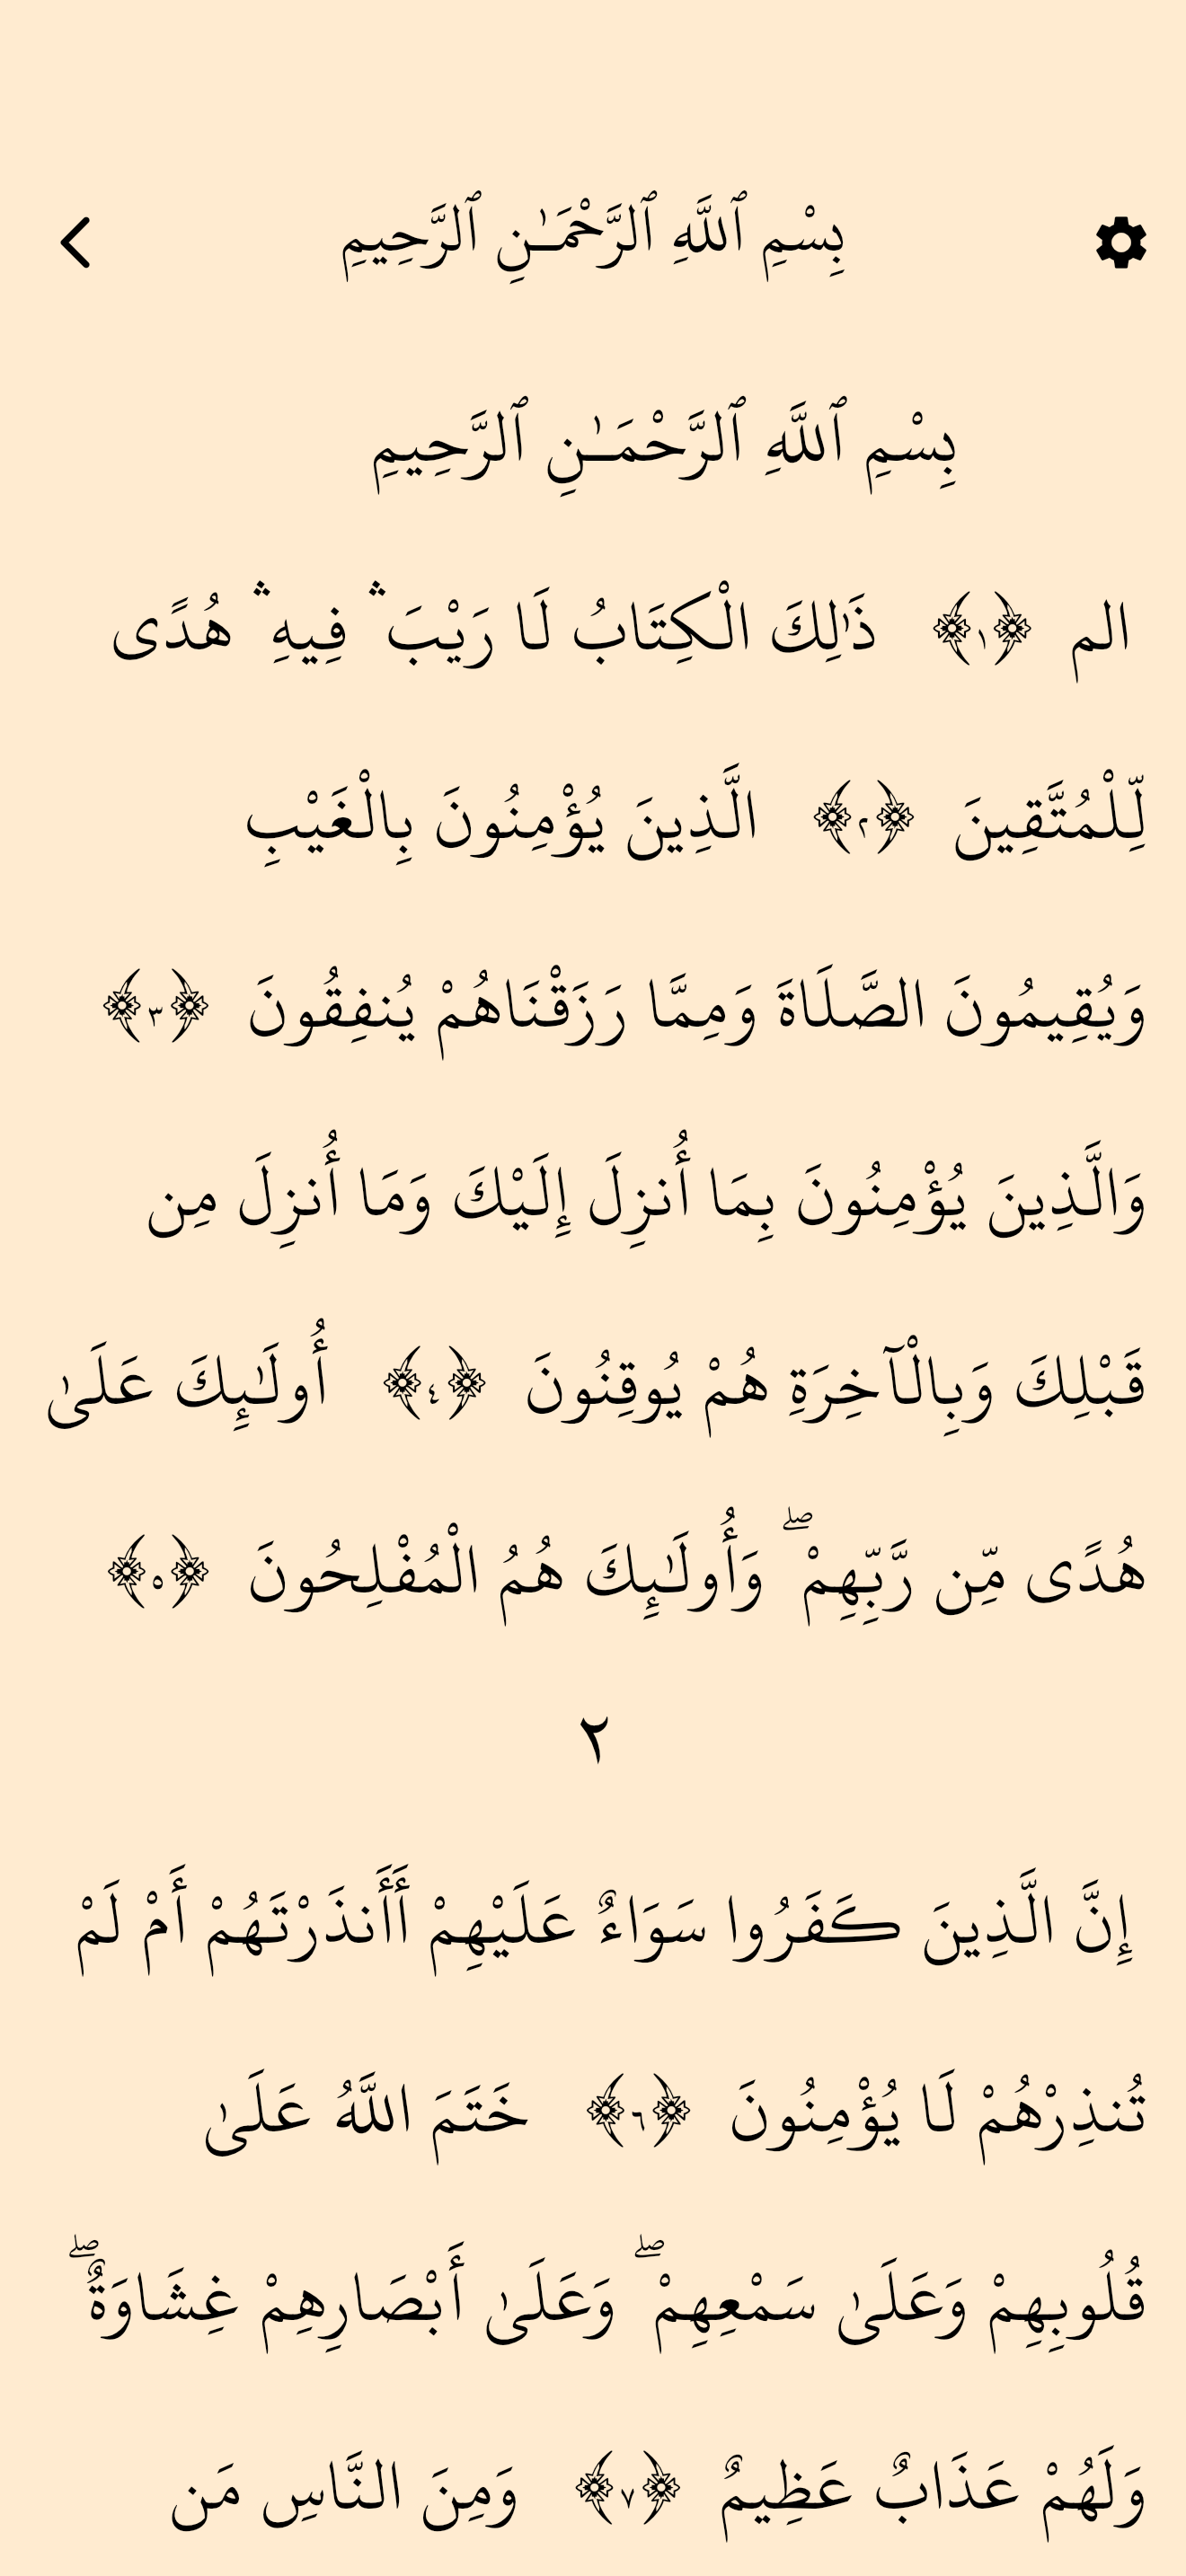 بِسْمِ ٱللَّهِ ٱلرَّحْمَـٰنِ ٱلرَّحِيمِ
بِسْمِ ٱللَّهِ ٱلرَّحْمَـٰنِ ٱلرَّحِيمِ
الم ﴿١﴾ ذَٰلِكَ الْكِتَابُ لَا رَيْبَ ۛ فِيهِ ۛ هُدًى
لِّلْمُتَّقِينَ ﴿٢﴾ الَّذِينَ يُؤْمِنُونَ بِالْغَيْبِ
وَيُقِيمُونَ الصَّلَاةَ وَمِمَّا رَزَقْنَاهُمْ يُنفِقُونَ ﴿٣﴾
وَالَّذِينَ يُؤْمِنُونَ بِمَا أُنزِلَ إِلَيْكَ وَمَا أُنزِلَ مِن
قَبْلِكَ وَبِالْآخِرَةِ هُمْ يُوقِنُونَ ﴿٤﴾ أُولَـٰئِكَ عَلَىٰ
هُدًى مِّن رَّبِّهِمْ ۖ وَأُولَـٰئِكَ هُمُ الْمُفْلِحُونَ ﴿٥﴾
٢
إِنَّ الَّذِينَ كَفَرُوا سَوَاءٌ عَلَيْهِمْ أَأَنذَرْتَهُمْ أَمْ لَمْ
تُنذِرْهُمْ لَا يُؤْمِنُونَ ﴿٦﴾ خَتَمَ اللَّهُ عَلَىٰ
قُلُوبِهِمْ وَعَلَىٰ سَمْعِهِمْ ۖ وَعَلَىٰ أَبْصَارِهِمْ غِشَاوَةٌ ۖ
وَلَهُمْ عَذَابٌ عَظِيمٌ ﴿٧﴾ وَمِنَ النَّاسِ مَن